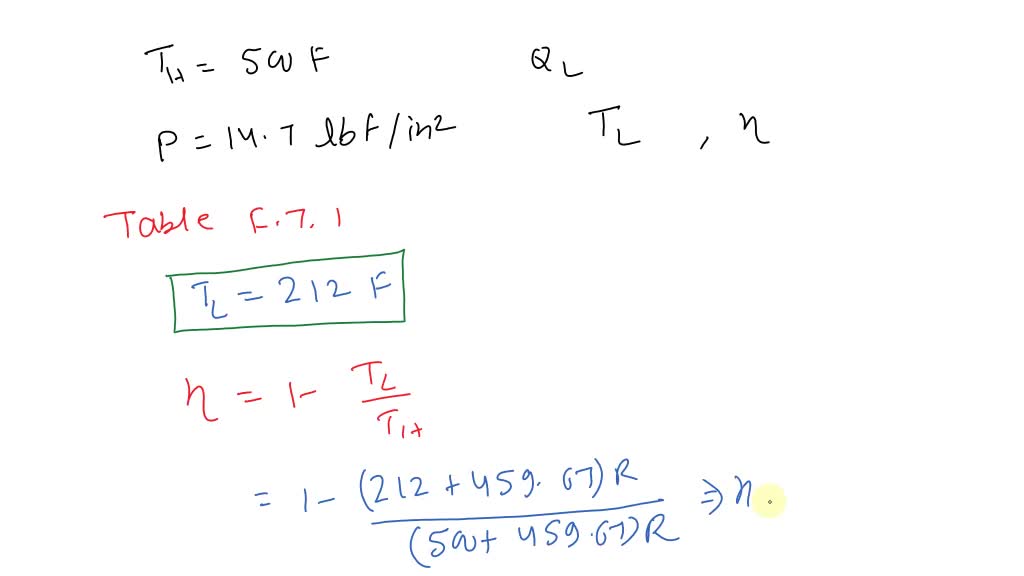 T_H = 500 F Q_L
P = 14.7 lbf/in² T_L , η
Table F.7.1
T_L = 212 F
η = 1 - T_L / T_H
= 1 - (212 + 459.67) R / (500 + 459.67) R ⇒ η